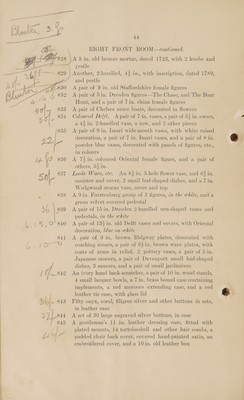 44
RIGHT FRONT ROOM—continued.
828 A 5 in. old bronze mortar, dated 1723, with 2 knobs and
pestle
829 Another, 2-handled, 4½ in., with inscription, dated 1789,
and pestle
830 A pair of 9 in. old Staffordshire female figures
832 A pair of 5 in. Dresden figures—The Chase, and The Boar
Hunt, and a pair of 7 in. china female figures
833 A pair of Chelsea satyr busts, decorated in flowers
834 Coloured Delft. A pair of 7 in. vases, a pair of 5½ in. ewers,
a 4½ in. 2-handled vase, a cow, and 2 other pieces
835 A pair of 8 in. Imari wide-mouth vases, with white raised
decoration, a pair of 7 in. Imari vases, and a pair of 8 in.
powder blue vases, decorated with panels of figures, etc.,
in colours
836 A 7½ in. coloured Oriental female figure, and a pair of
others, 5½ in.
837 Leeds Ware, etc. An 8½ in. 5-hole flower vase, and 6½ in.
creamer and cover, 2 small leaf-shaped dishes, and a 7 in.
Wedgwood sucrier vase, cover and top
838 A 9 in. Furstenburg group of 3 figures, in the white, and a
green velvet covered pedestal
839 A pair of 15 in. Dresden 2-handled urn-shaped vases and
pedestals, in the white
840 A pair of 12½ in. old Delft vases and covers, with Oriental
decoration, blue on white
841 A pair of 9 in. brown Ridgway plates, decorated with
coaching scenes, a pair of 6½ in. brown ware plates, with
coats of arms in relief, 2 pottery vases, a pair of 5 in.
Japanese saucers, a pair of Devonport small leaf-shaped
dishes, 3 saucers, and a pair of small jardinieres
842 An ivory hand back-scratcher, a pair of 10 in. wood stands,
4 small lacquer bowls, a 7 in. brass bound case containing
implements, a red morocco extending case, and a red
leather tie case, with glass lid
843 Fifty onyx, coral, filigree silver and other buttons in sets,
in leather case
844 A set of 20 large engraved silver buttons, in case
845 A gentleman's 11 in. leather dressing case, fitted with
plated mounts, 14 tortoiseshell and other hair combs, a
padded chair back cover, covered hand-painted satin, an
embroidered cover, and a 10 in. old leather box